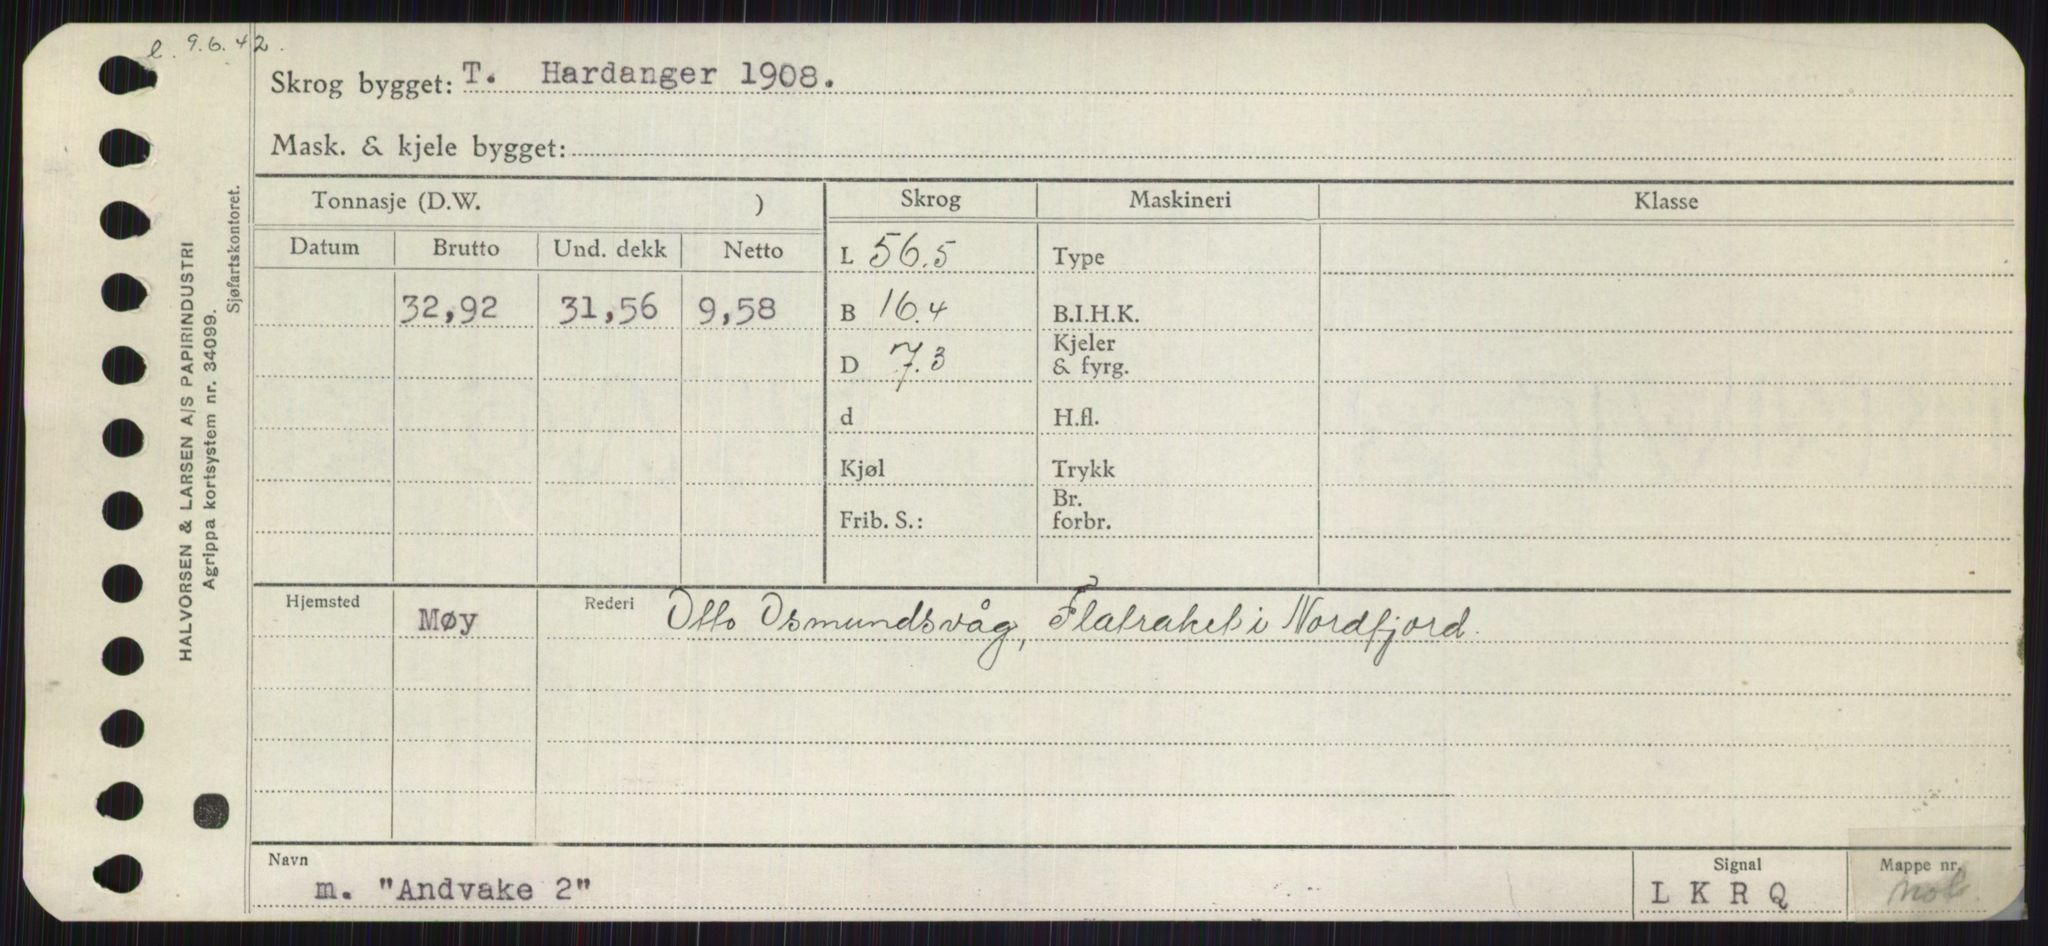 l. 9.6.42.
Skrog bygget: T. Hardanger 1908.
Mask. & kjele bygget:
Tonnasje (D.W. ) Skrog Maskineri Klasse
Datum Brutto Und. dekk Netto L 56.5 Type
32,92 31,56 9,58 B 16.4 B.I.H.K.
D 7.3 Kjeler & fyrg.
d H.fl.
Kjøl Trykk
Frib. S.: Br. forbr.
Hjemsted Møy Rederi Otto Osmundsvåg, Flatraket i Nordfjord.
Navn Signal Mappe nr.
m. "Andvake 2" L K R Q mob.
HALVORSEN & LARSEN A/S PAPIRINDUSTRI
Agrippa kortsystem nr. 34099.
Sjøfartskontoret.